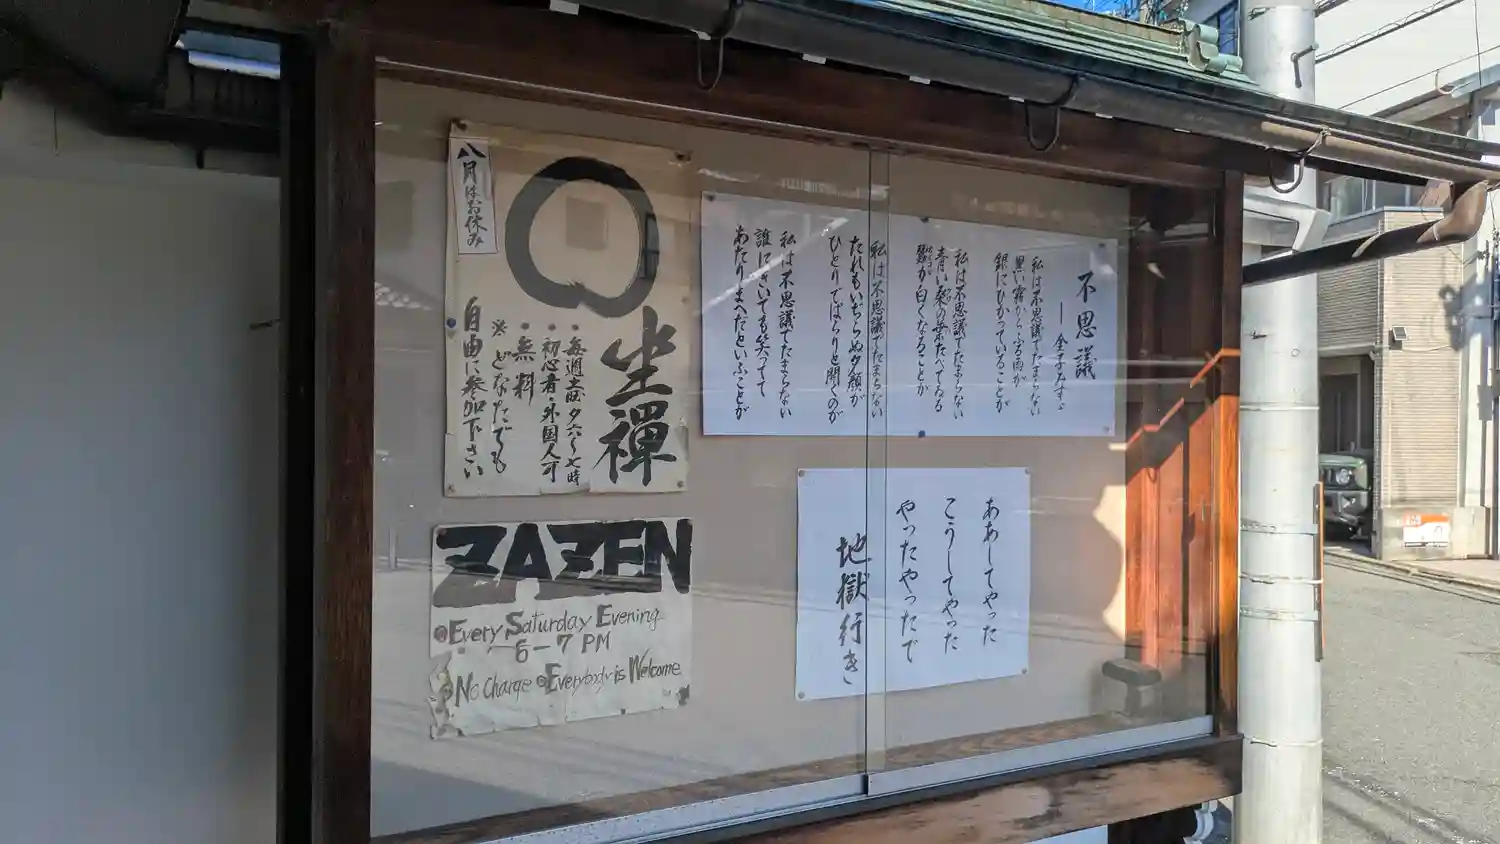 八月はお休み
坐禅
●毎週土曜夕六～七時
●初心者・外国人可
●無料
※どなたでも
自由に参加下さい
ZAZEN
●Every Saturday Evening
6-7 PM
No Charge ●Everybody is Welcome
不思議
― 金子みすゞ
私は不思議でたまらない
黒い雲からふる雨が
銀にひかっていることが
私は不思議でたまらない
青い桑の葉たべてゐる
蚕が白くなることが
私は不思議でたまらない
たれもいぢらぬ夕顔が
ひとりでぱらりと開くのが
私は不思議でたまらない
誰にきいても笑ってて
あたりまへだといふことが
ああしてやった
こうしてやった
やったやったで
地獄行き